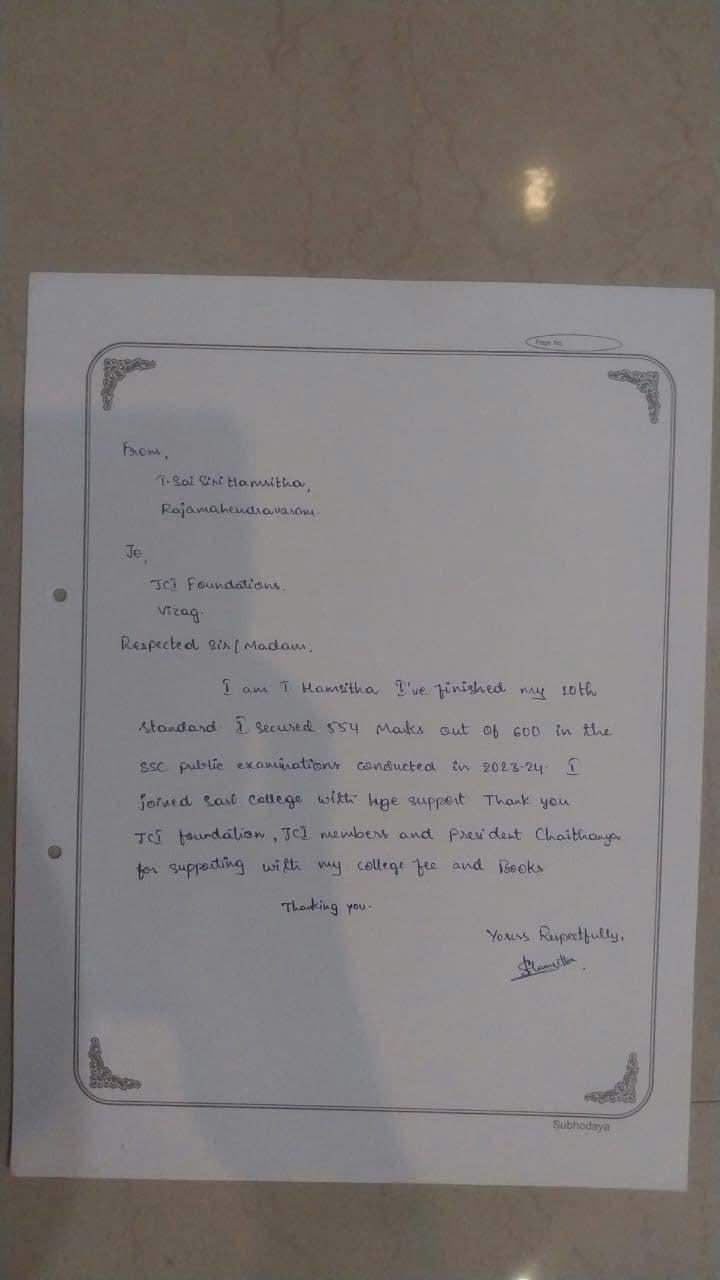 Page No.
From,
T. Sai Siri Hamsitha,
Rajamahendravaram.
To,
JCI Foundations.
Vizag.
Respected Sir/Madam.
I am T Hamsitha I've finished my 10th
standard I secured 554 Marks out of 600 in the
SSC public examinations conducted in 2023-24. I
joined Sasi College with huge support Thank you
JCI foundation, JCI members and President Chaithanya
for supporting with my college fee and Books
Thanking you.
Yours Respectfully,
Hamsitha.
Subhodaya